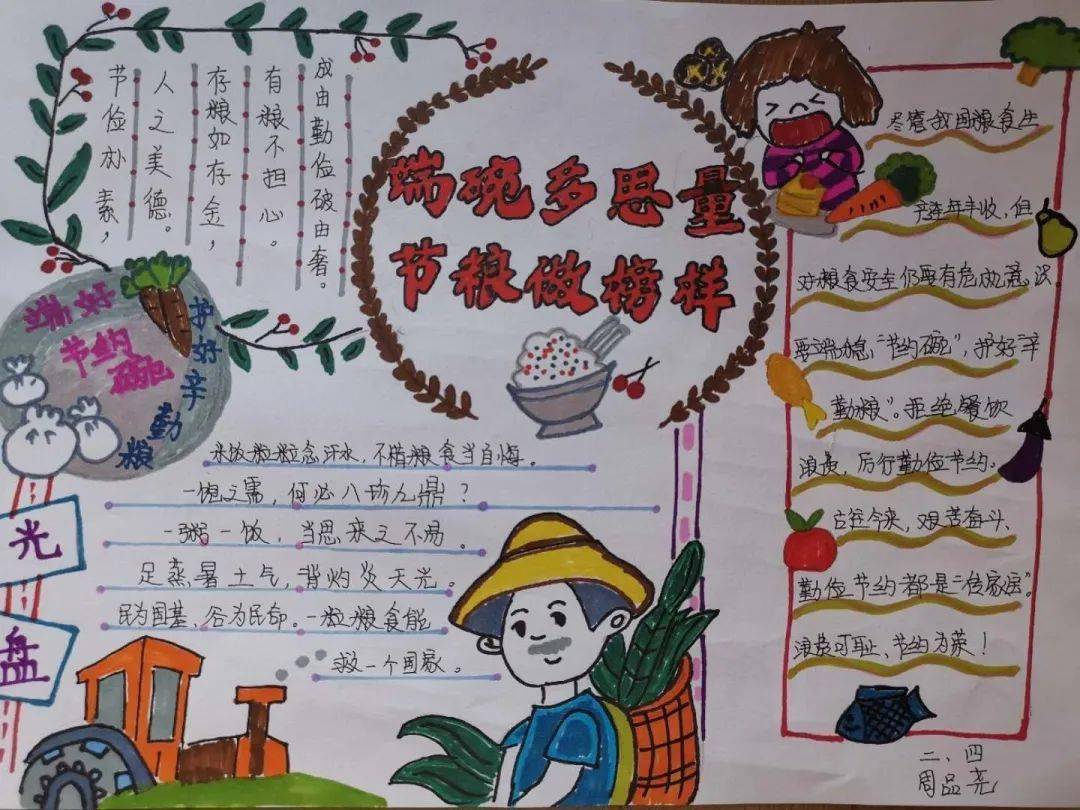 端碗多思量
节粮做榜样
节俭朴素，
人之美德。
存粮如存金，
有粮不担心。
成由勤俭破由奢。
端好
节约
碗
护好辛
勤
粮
光
盘
米饭粒粒念汗水，不惜粮食当自悔。
一饱之需，何必八珍九鼎？
一粥一饭，当思来之不易。
足蒸暑土气，背灼炎天光。
民为国基，谷为民命。一粒粮食能
救一个国家。
尽管我国粮食生
产连年丰收，但
对粮食安全仍要有危机意识。
要端稳“节约碗”，护好“辛
勤粮”。拒绝餐饮
浪费，厉行勤俭节约。
古往今来，艰苦奋斗、
勤俭节约都是“传家宝”。
浪费可耻、节约为荣！
二、四
周品尧